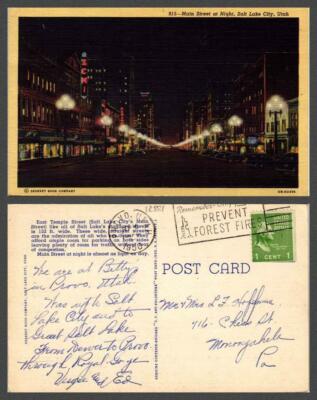 815—Main Street at Night, Salt Lake City, Utah
© DESERET BOOK COMPANY
East Temple Street (Salt Lake City's Main
Street) like all of Salt Lake's business streets
is 132 ft. wide. These wide, straight streets
are the admiration of all who visit here. They
afford ample room for parking on both sides
leaving plenty of room for traffic, without fear
of congestion.
Main Street at night is almost as light as day.
PREVENT
FOREST FIRES
1 CENT 1
POST CARD
We are at Betty's
in Provo, Utah.
Was up to Salt
Lake City and to
Great Salt Lake
From Denver to Provo
through Royal Gorge
Mr & Mrs L F Hoffman
416 - Chess St
Monongahela
Pa